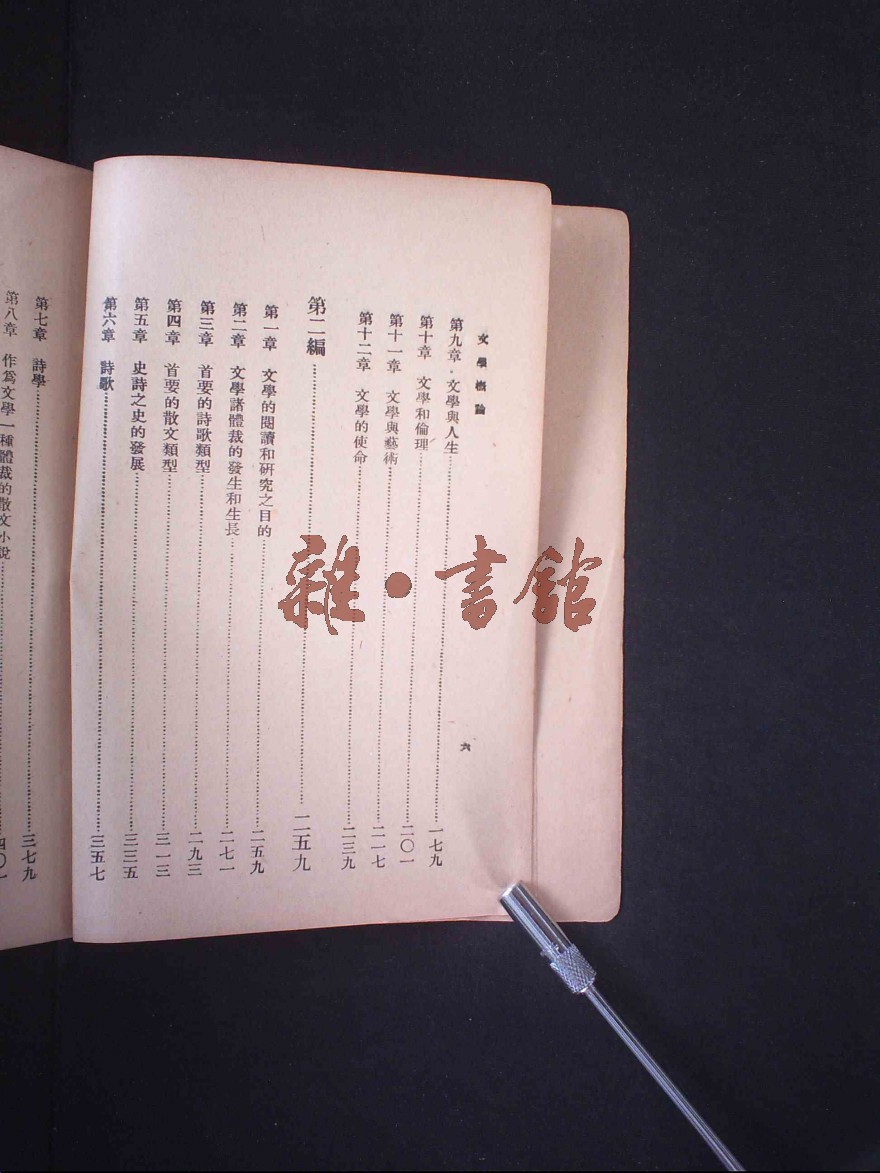 文學概論
第九章 文學與人生…………一七九
第十章 文學和倫理…………二〇一
第十一章 文學與藝術…………二一七
第十二章 文學的使命…………二三九
第二編…………二五九
第一章 文學的閱讀和研究之目的…………二五九
第二章 文學諸體裁的發生和生長…………二七一
第三章 首要的詩歌類型…………二九三
第四章 首要的散文類型…………三一三
第五章 史詩之史的發展…………三三五
第六章 詩歌…………三五七
六
第七章 詩學…………三七九
第八章 作為文學一種體裁的散文小說…………四〇一
雜·書館